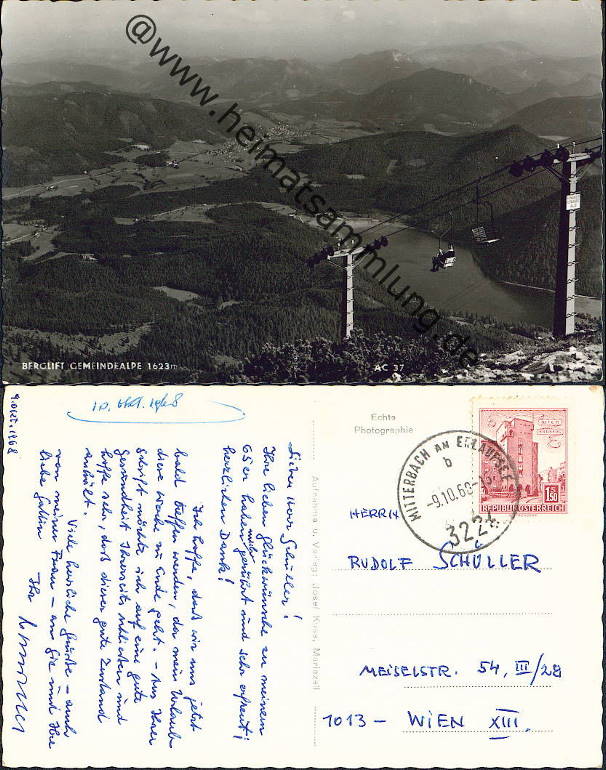 @www.heimatsammlung.de
BERGLIFT GEMEINDEALPE 1623m
AC 37
9. Okt. 1968
10. Okt. 1968
Lieber Herr Schüller!
Ihre lieben Glückwünsche zu meinem
65er haben mich gerührt und sehr erfreut;
herzlichen Dank!
Ich hoffe, daß wir uns jetzt
bald treffen werden, da mein Urlaub
diese Woche zu Ende geht. – Aus Ihrer
Schrift möchte ich auf eine gute
Gesundheit Ihrerseits schließen und
hoffe sehr, daß dieser gute Zustand
anhält.
Viele herzliche Grüße – auch
von meiner Frau – an Sie und Ihre
liebe Gattin Ihr
Echte
Photographie
Aufnahme u. Verlag: Josef Kuss, Mariazell
MITTERBACH AM ERLAUFSEE
b
-9.10.68-15
3224
1.50
REPUBLIK ÖSTERREICH
HERRN
RUDOLF SCHÜLLER
MEISELSTR. 54, III/28
1013 – WIEN XIII.